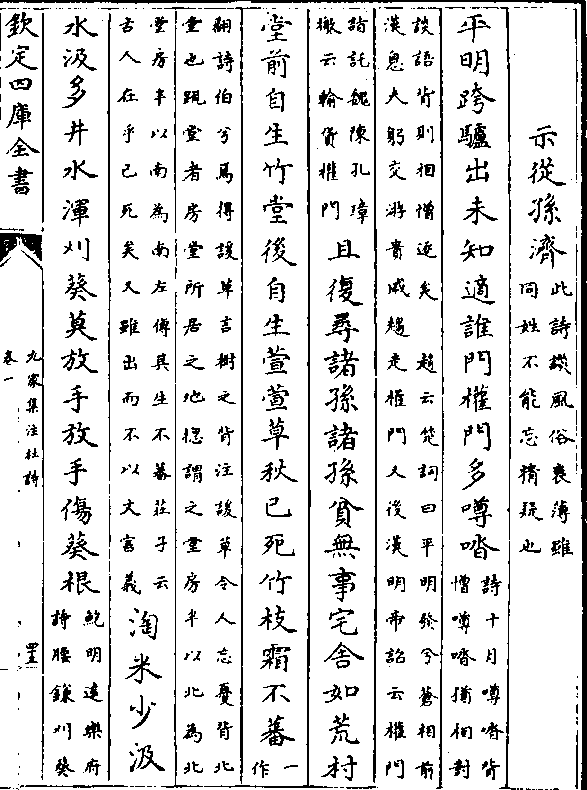 示從孫濟
此詩風俗衰薄雖
同姓不能忘猜疑也
平明跨驢出未知適誰門權門多噂𠴲
詩十月噂𠴲背
憎噂𠴲猶相對
談語背則相憎逐矣 趙云楚詞曰平明發兮蒼梧前
漢息夫躬交游貴戚趨走權門又後漢明帝詔云權門
請託魏陳孔璋
檄云輸貨權門
且復尋諸孫諸孫貧無事宅舍如荒村
堂前自生竹堂後自生萱萱草秋已死竹枝霜不蕃
一
作
翻詩伯兮焉得諼草言樹之背注諼草令人忘憂背北
堂也疏堂者房堂所居之地惣謂之堂房半以北為北
堂房半以南為南左傳其生不蕃莊子云
古人在乎已死矣又雖出而不以文害義
淘米少汲
水汲多井水渾刈葵莫放手放手傷葵根
鮑明遠樂府
腰鎌刈葵
欽定四庫全書
九家集注杜詩
卷一